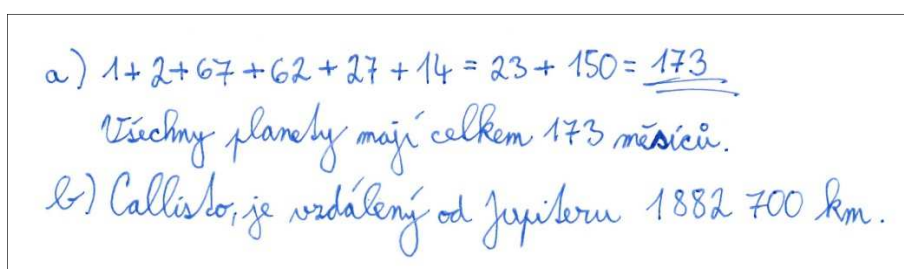 a) 1+2+67+62+27+14 = 23 + 150 = 173
Všechny planety mají celkem 173 měsíců.
b) Callisto, je vzdálený od Jupiteru 1882 700 km.